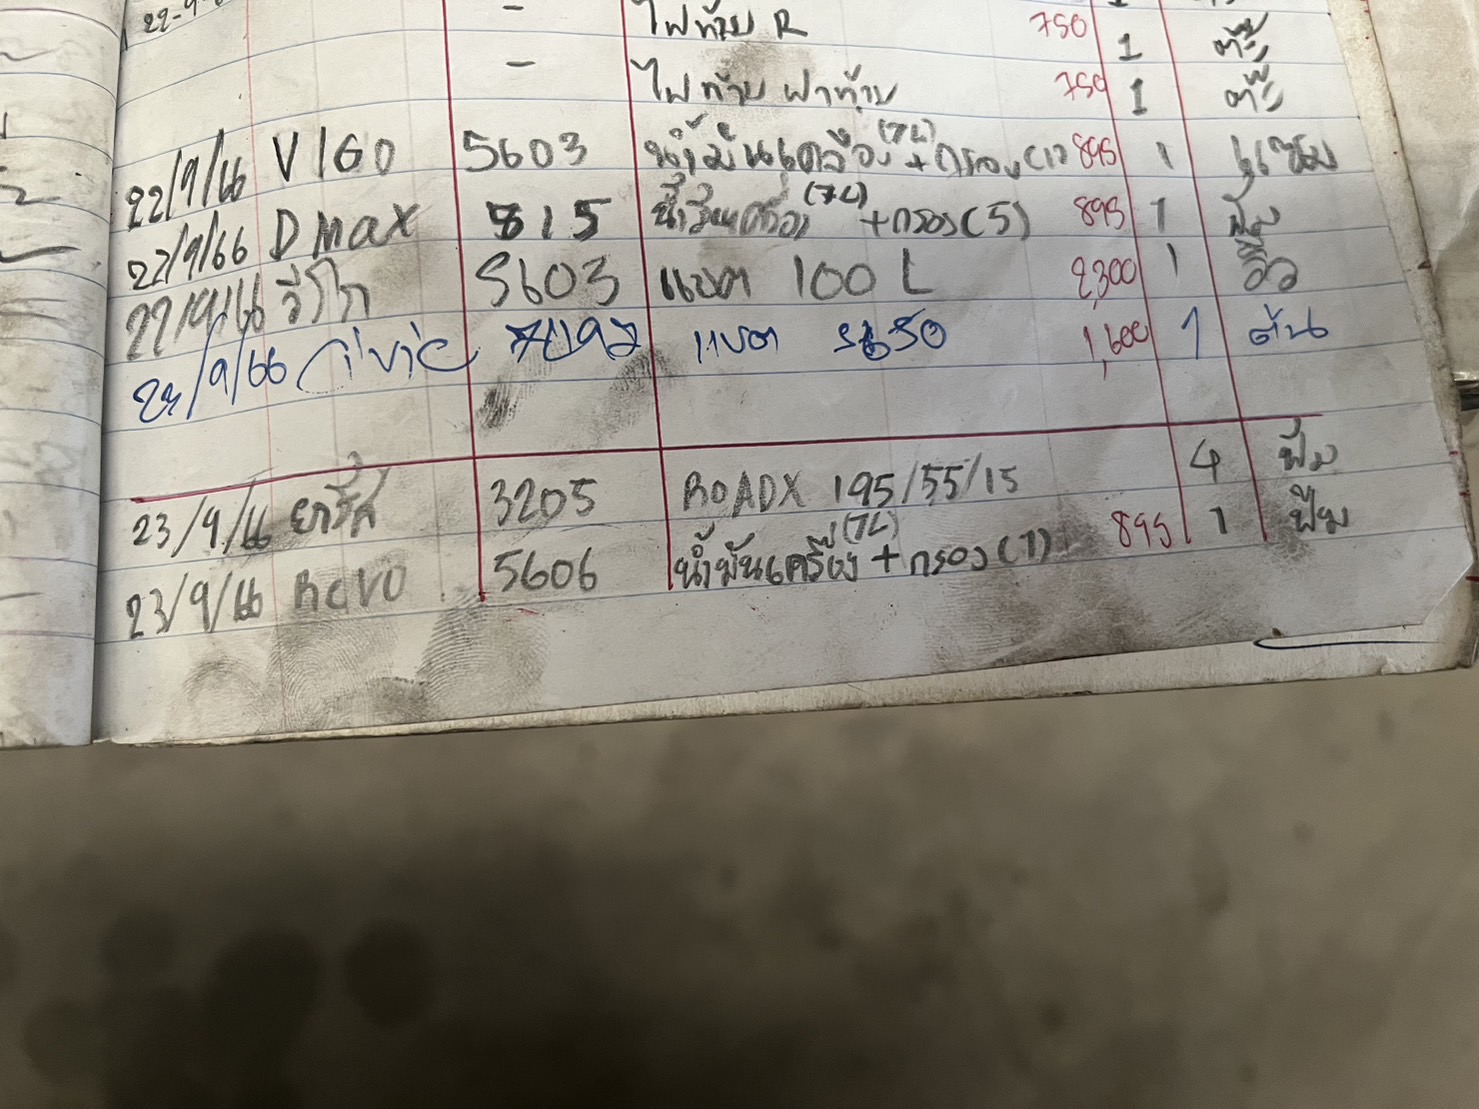 ไฟท้าย R 750 1
- ไฟท้าย ฝาท้าย 750 1
22/9/66 VIGO 5603 น้ำมันเครื่อง (7L) + กรอง (1) 895 1 แซม
22/9/66 DMAX 815 น้ำมันเครื่อง (7L) + กรอง (5) 895 1
22/9/66 วีโก 5603 แบต 100 L 2,300 1 วิว
22/9/66 แบต 1,600 1 ต้น
23/9/66 ยาริส 3205 ROADX 195/55/15 4 ฟิม
23/9/66 REVO 5606 น้ำมันเครื่อง (7L) + กรอง (1) 895 1 ฟิม